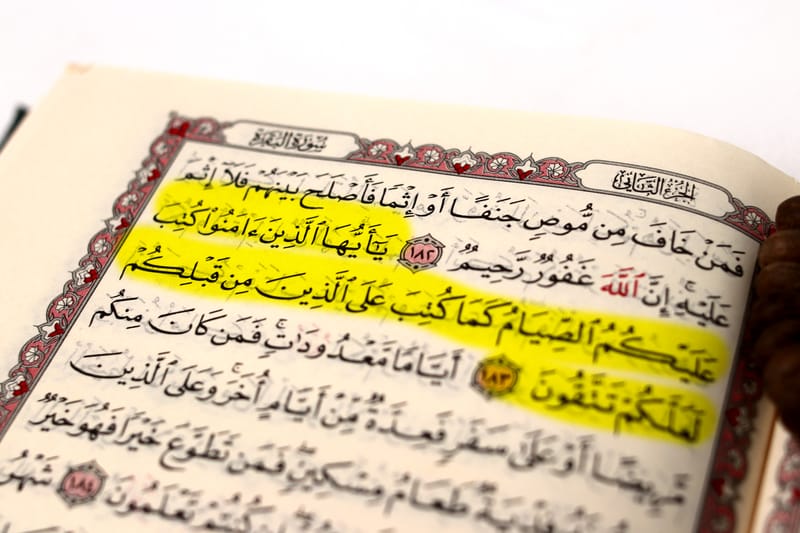 الجزء الثاني
سورة البقرة
فَمَنْ خَافَ مِن مُّوصٍ جَنَفًا أَوْ إِثْمًا فَأَصْلَحَ بَيْنَهُمْ فَلَآ إِثْمَ
عَلَيْهِ ۚ إِنَّ ٱللَّهَ غَفُورٌ رَّحِيمٌ ١٨٢ يَٰٓأَيُّهَا ٱلَّذِينَ ءَامَنُوا۟ كُتِبَ
عَلَيْكُمُ ٱلصِّيَامُ كَمَا كُتِبَ عَلَى ٱلَّذِينَ مِن قَبْلِكُمْ
لَعَلَّكُمْ تَتَّقُونَ ١٨٣ أَيَّامًا مَّعْدُودَٰتٍ ۚ فَمَن كَانَ مِنكُم
مَّرِيضًا أَوْ عَلَىٰ سَفَرٍ فَعِدَّةٌ مِّنْ أَيَّامٍ أُخَرَ ۚ وَعَلَى ٱلَّذِينَ
فِدْيَةٌ طَعَامُ مِسْكِينٍ ۖ فَمَن تَطَوَّعَ خَيْرًا فَهُوَ خَيْرٌ
كُنتُمْ تَعْلَمُونَ ١٨٤ شَهْرُ